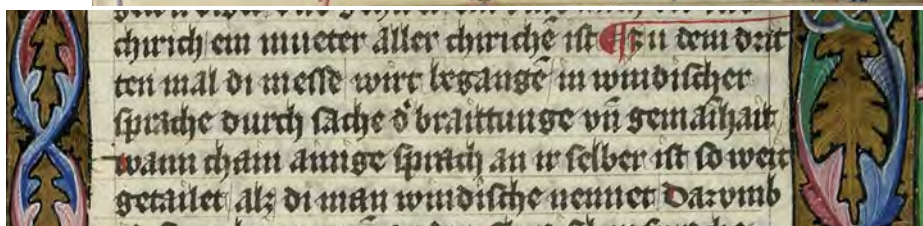 chirich ein mueter aller chirichē ist Zu dem drit
ten mal di messe wirt begangē in windischer
sprache durch sache d' braittunge vn̄ gemaīhait
wann chain ainige sprach an ir selber ist so weit
getailet alz di man windische nennet Darvmb